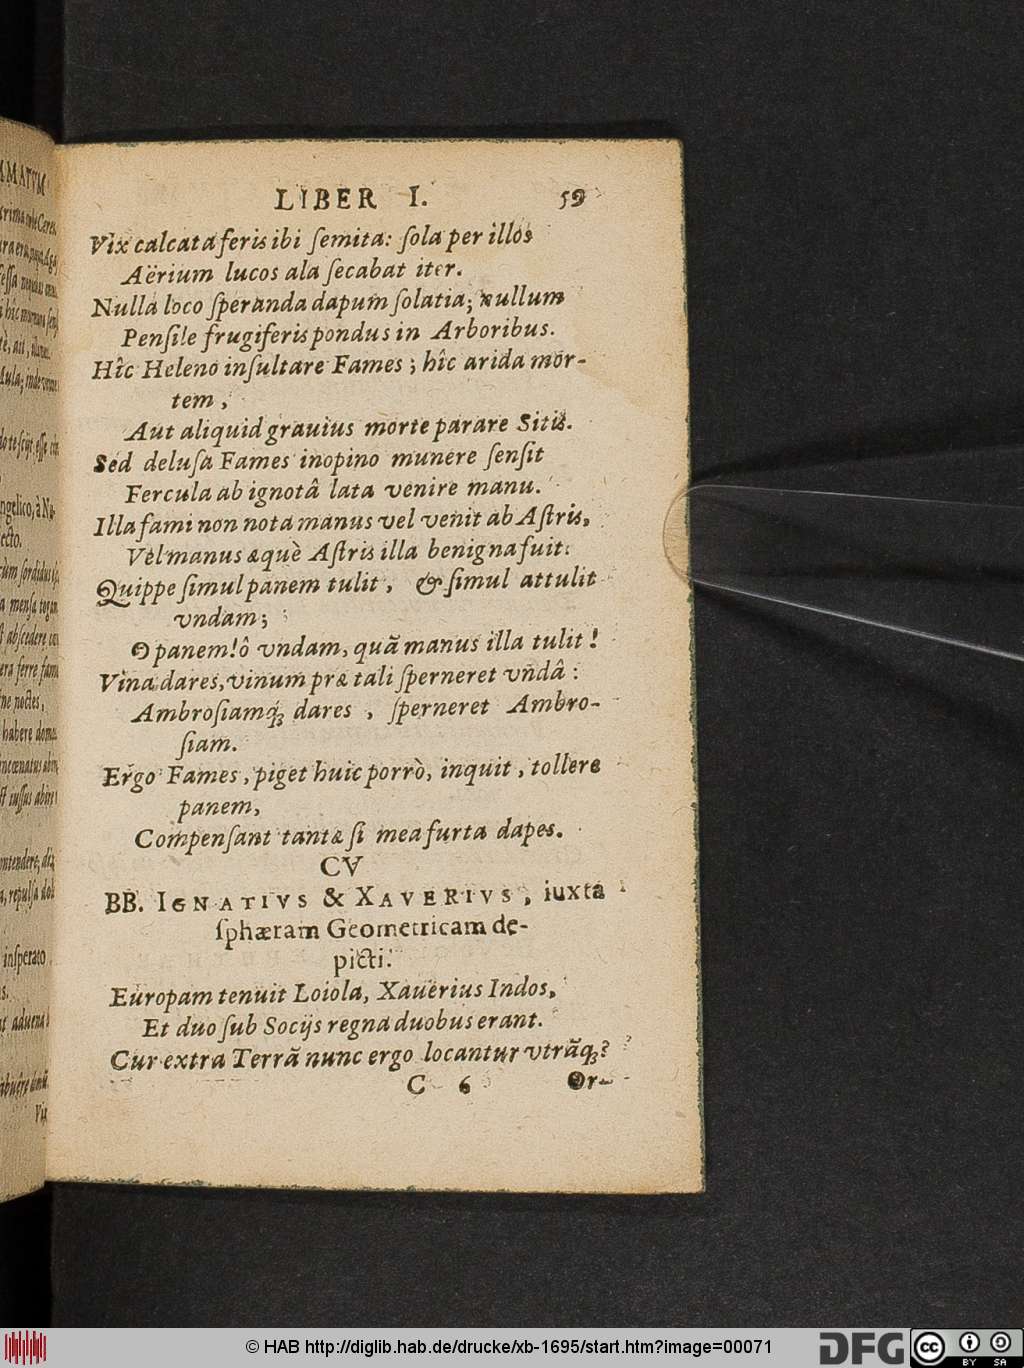 LIBER I. 59
Vix calcata feris ibi ſemita: ſola per illos
Aërium lucos ala ſecabat iter.
Nulla loco ſperanda dapum ſolatia; nullum
Penſile frugiferis pondus in Arboribus.
Hîc Heleno inſultare Fames; hîc arida mor-
tem,
Aut aliquid grauius morte parare Sitis.
Sed deluſa Fames inopino munere ſenſit
Fercula ab ignotâ lata venire manu.
Illa fami non nota manus vel venit ab Aſtris,
Vel manus æquè Aſtris illa benigna fuit.
Quippe ſimul panem tulit, & ſimul attulit
vndam;
O panem! ô vndam, quã manus illa tulit!
Vina dares, vinum præ tali ſperneret vndâ:
Ambroſiamq; dares, ſperneret Ambro-
ſiam.
Ergo Fames, piget huic porrò, inquit, tollere
panem,
Compenſant tantæ ſi mea furta dapes.
CV
BB. IGNATIVS & XAVERIVS, iuxta
ſphæram Geometricam de-
picti.
Europam tenuit Loiola, Xauerius Indos,
Et duo ſub Socijs regna duobus erant.
Cur extra Terrã nunc ergo locantur vtrãq;?
C 6 Or-
© HAB http://diglib.hab.de/drucke/xb-1695/start.htm?image=00071
DFG
cc BY SA